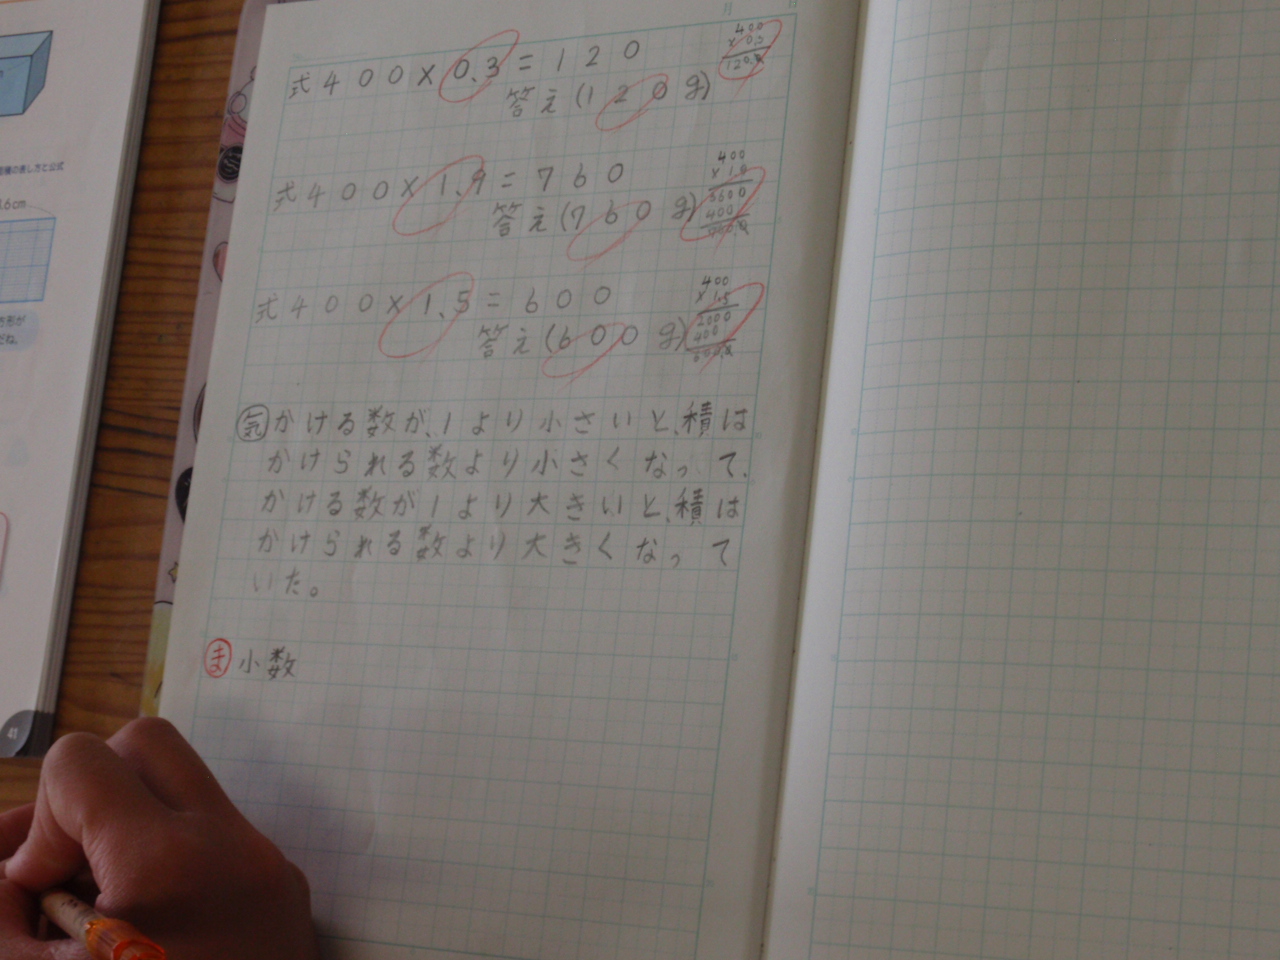 式400×0.3=120
答え(120g)
400
×0.3
120.0
式400×1.9=760
答え(760g)
400
×1.9
3600
400
式400×1.5=600
答え(600g)
400
×1.5
2000
400
600.0
気 かける数が、1より小さいと、積は
かけられる数より小さくなって、
かける数が1より大きいと、積は
かけられる数より大きくなって
いた。
ま 小数
の表し方と公式
.6cm
方形が
だね。
41